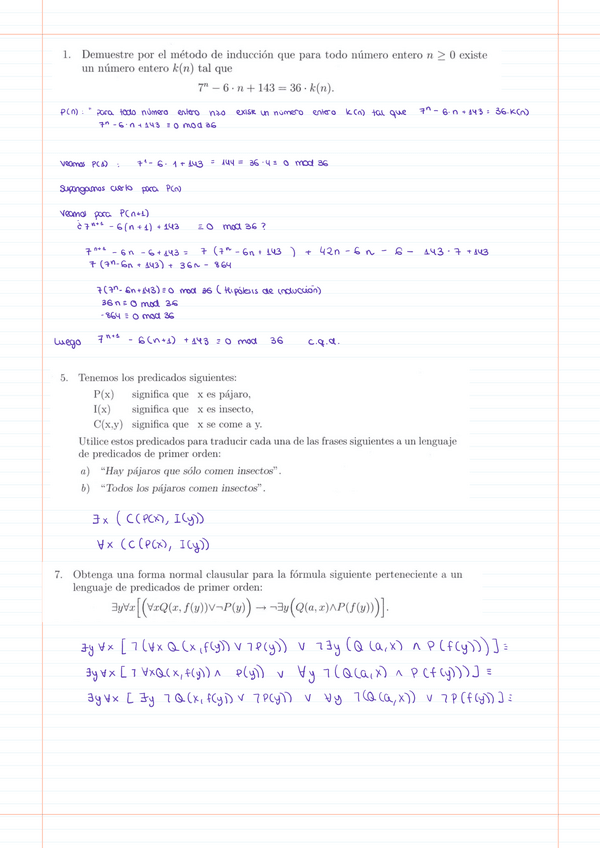 1. Demuestre por el método de inducción que para todo número entero n ≥ 0 existe
un número entero k(n) tal que
7ⁿ − 6 · n + 143 = 36 · k(n).
P(n) : " para todo número entero n≥0 existe un número entero k(n) tal que 7ⁿ - 6·n + 143 = 36·k(n)
7ⁿ - 6·n + 143 ≡ 0 mod 36
Veamos P(1) : 7¹ - 6· 1 + 143 = 144 = 36·4 ≡ 0 mod 36
Supongamos cierto para P(n)
Veamos para P(n+1)
¿ 7ⁿ⁺¹ - 6(n+1) + 143 ≡ 0 mod 36 ?
7ⁿ⁺¹ - 6n - 6 + 143 = 7 (7ⁿ - 6n + 143 ) + 42n - 6n - 6 - 143·7 + 143
7 (7ⁿ - 6n + 143) + 36n - 864
7(7ⁿ - 6n + 143) ≡ 0 mod 36 ( Hipótesis de inducción)
36n ≡ 0 mod 36
-864 ≡ 0 mod 36
Luego 7ⁿ⁺¹ - 6(n+1) + 143 ≡ 0 mod 36 c.q.d.
5. Tenemos los predicados siguientes:
P(x) significa que x es pájaro,
I(x) significa que x es insecto,
C(x,y) significa que x se come a y.
Utilice estos predicados para traducir cada una de las frases siguientes a un lenguaje
de predicados de primer orden:
a) “Hay pájaros que sólo comen insectos”.
b) “Todos los pájaros comen insectos”.
∃x ( C(P(x), I(y))
∀x (C(P(x), I(y))
7. Obtenga una forma normal clausular para la fórmula siguiente perteneciente a un
lenguaje de predicados de primer orden:
∃y∀x[(∀xQ(x, f(y))∨¬P(y)) → ¬∃y(Q(a, x)∧P(f(y)))].
∃y ∀x [ ¬(∀x Q(x, f(y)) ∨ ¬P(y)) ∨ ¬∃y (Q (a, x) ∧ P(f(y)))] ≡
∃y ∀x [ ¬ ∀xQ(x, f(y)) ∧ P(y)) ∨ ∀y ¬(Q(a,x) ∧ P(f(y)))] ≡
∃y ∀x [ ∃y ¬Q(x, f(y)) ∨ ¬P(y)) ∨ ∀y ¬(Q (a,x)) ∨ ¬P(f(y))] ≡